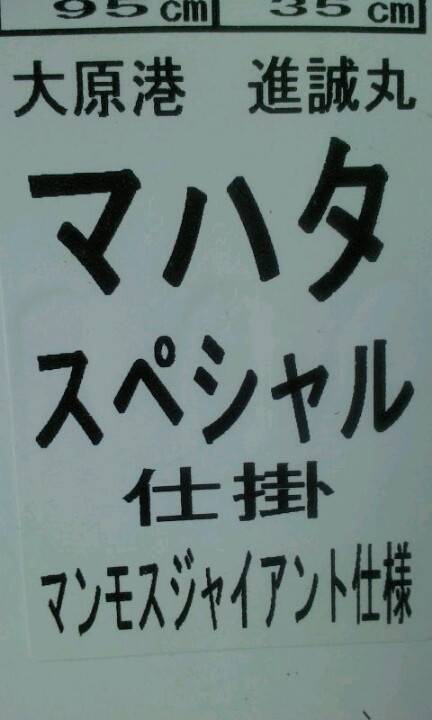 95cm 35cm
大原港 進誠丸
マハタ
スペシャル
仕掛
マンモスジャイアント仕様